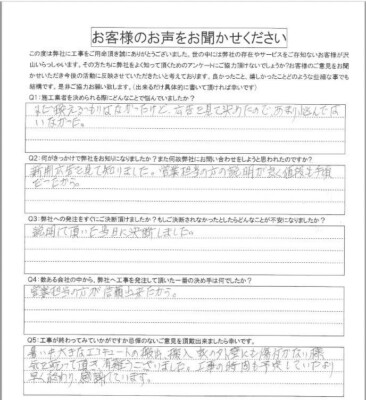 お客様のお声をお聞かせください
この度は弊社に工事をご用命頂き誠にありがとうございました。世の中には弊社の存在やサービスをご存知ないお客様が沢
山いらっしゃいます。その方たちに弊社をよく知って頂くためのアンケートにご協力頂けないでしょうか?お客様のご意見をお聞
かせいただき今後の活動に反映させていただきたいと考えております。良かったこと、嬉しかったことどのような些細な事でも
結構です。是非ご協力お願い致します。(出来るだけ具体的に書いて頂ければ幸いです)
Q1:施工業者を決められる際にどんなことで悩んでいましたか?
まだ換えるつもりはなかったけど、広告を見て決めたので、あまり悩んでは
いなかった。
Q2:何がきっかけで弊社をお知りになりましたか?また何故弊社にお問い合わせをしようと思われたのですか?
新聞広告を見て知りました。営業担当の方の説明が良く値段も手頃
だったから。
Q3:弊社への発注をすぐにご決断頂けましたか?もしご決断されなかったとしたらどんなことが不安になりましたか?
説明して頂いた当日に決断しました。
Q4:数ある会社の中から、弊社へ工事を発注して頂いた一番の決め手は何でしたか?
営業担当の方が信頼出来たから。
Q5:工事が終わってみていかがですか忌憚のないご意見を頂戴出来ましたら幸いです。
暑い中大きなエコキュートの搬出、搬入 家の外壁にも傷が付かない様
有難うございました。工事の時間も予定していたより
早く終わり、感謝しています。